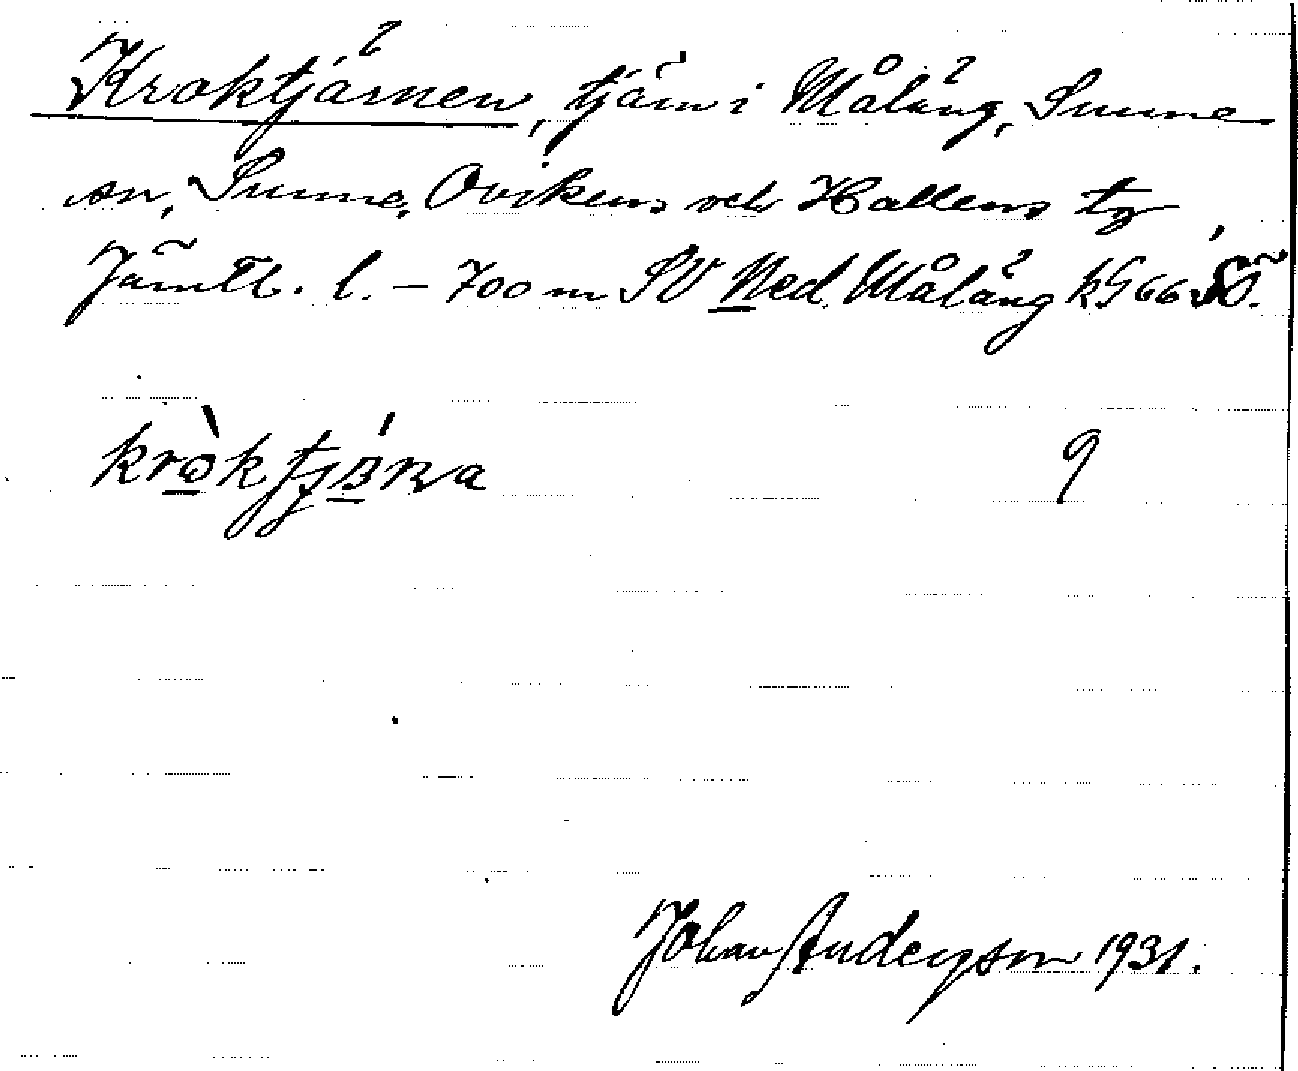 Kroktjärnen, tjärn i Måläng, Sunne
sn, Sunne, Ovikens och Hallens tg
Jämtl. l. – 700 m SV Ned. Måläng kG 66 SÖ.
9
Johan Anderson 1931.